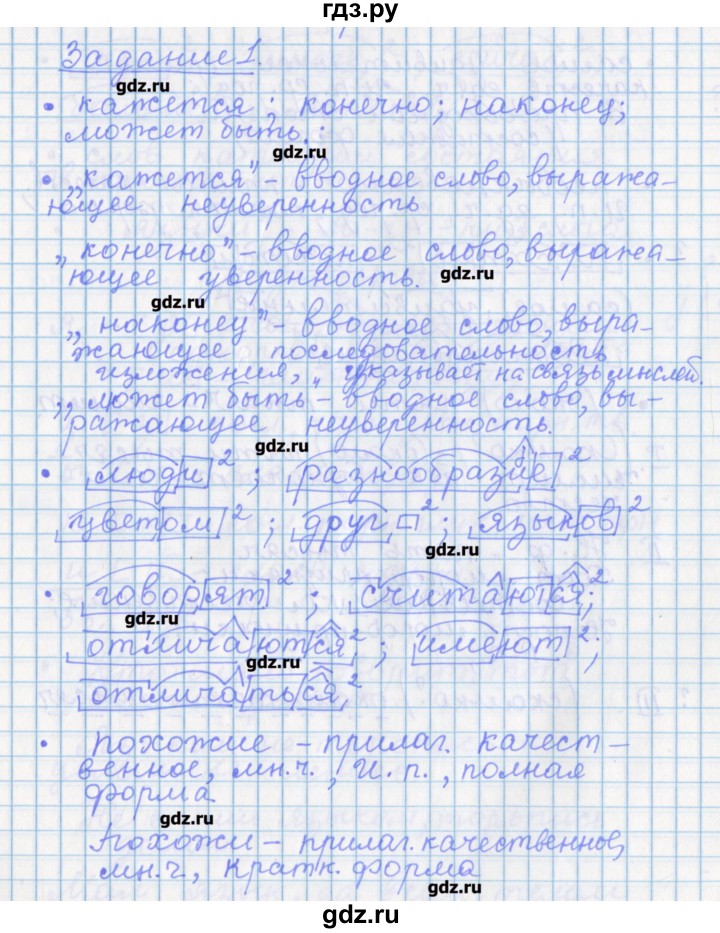 гдз.ру
Задание 1.
gdz.ru
• кажется; конечно; наконец;
может быть.
gdz.ru
• „кажется" – вводное слово, выража-
ющее неуверенность
„конечно" – вводное слово, выража-
ющее уверенность.
gdz.ru
gdz.ru
„наконец" – вводное слово, выра-
жающее последовательность
изложения, указывает на связь мыслей.
„может быть" – вводное слово, вы-
ражающее неуверенность.
gdz.ru
• люди²; разнообразие²
цветом²; друг²; языков²
gdz.ru
• говорят²; считаются²;
gdz.ru
отличаются²; имеют²;
gdz.ru
отличаться²
• похожие – прилаг. качест-
венное, мн.ч., И.п., полная
форма
gdz.ru
Похожи – прилаг. качественное,
мн.ч, кратк. форма
gdz.ru
gdz.ru